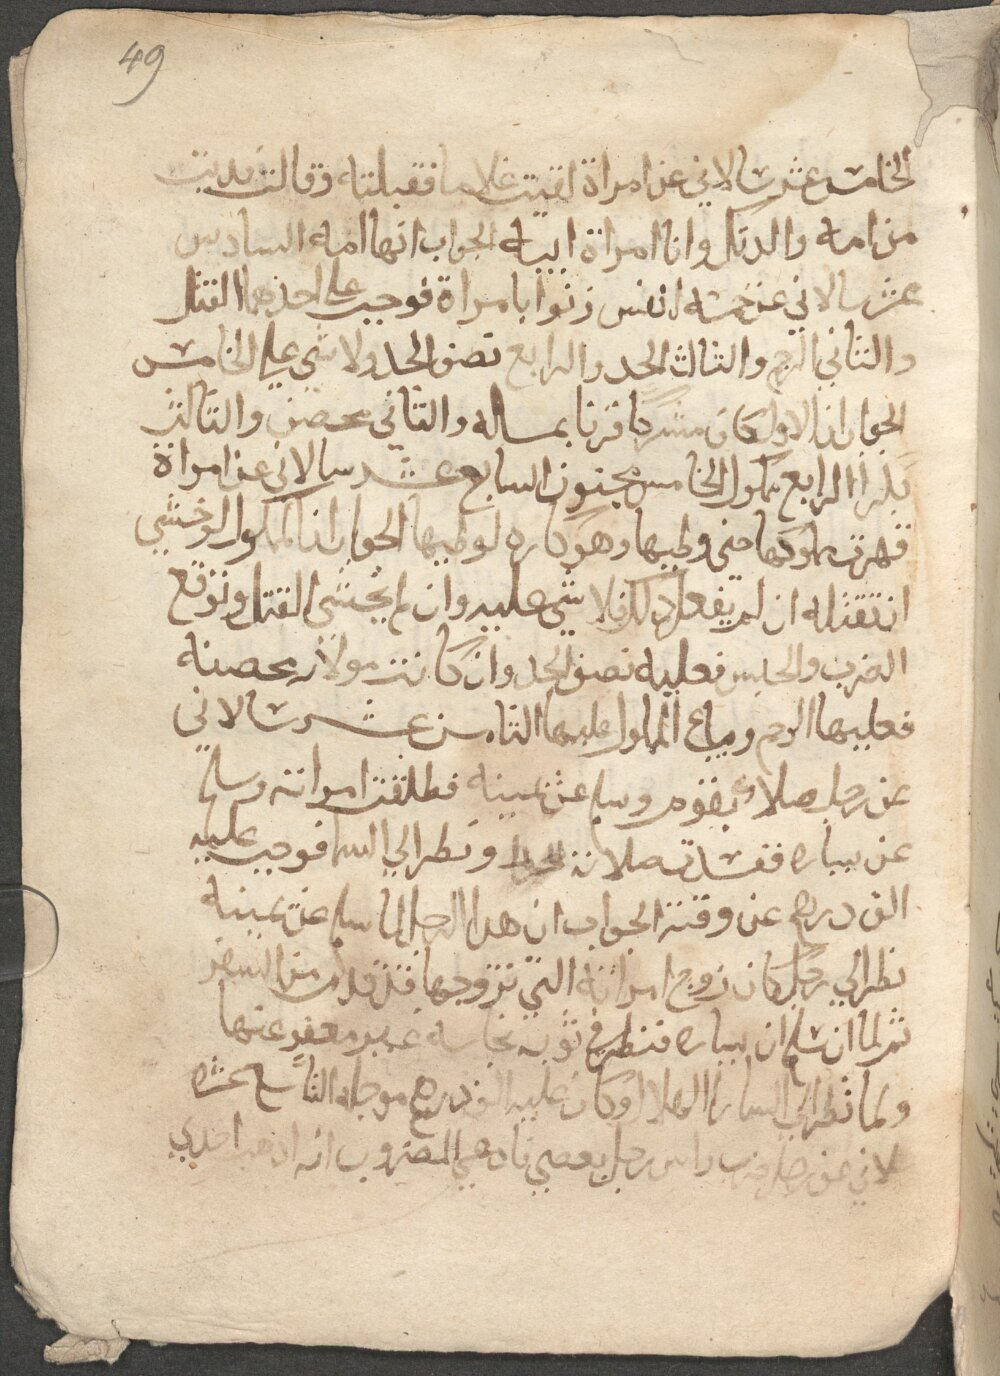 49
الخامس عشر سالاني عن امراة لقيت غلاما فقبلته وقالت فديت
من امه والدتك وانا امراة ابيه الجواب انها امه السادس
عشر سالاني عن خمسه انفس زنوا بامراة فوجب على احدهما القتل
والثاني الرجم والثالث الحد والرابع نصف الحد ولا شي على الخامس
الجواب ان الاول كان مشركا فزنا بمسلمه والثاني محصن والثالث
بكرا الرابع مملوك الخامس مجنون السابع عشر سالاني عن امراة
قهرت مملوكها حتى وطيها وهو كاره لوطيها الجواب ان المملوك الو خشي
ان تقتله ان لم يفعل ذلك فلا شي عليه وان لم يخشى القتل وتوقع
الضرب والحبس فعليه نصف الحد وان كانت مولاته محصنه
فعليها الرجم ويباع المملوك عليها الثامن عشر سالاني
عن رجل صلا بقوم وسلم عن يمينه فطلقت امراته وسلم
عن يساره ففسدت صلاته ونظر الي السما فوجب عليه
الف درهم عن وقته الجواب ان هذا الرجل لما سلم عن يمينه
نظر الي رجل كان زوج امراته التي تزوجها قد قدم من السفر
ثم لما ان سلم ان يساره فنظر في ثوبه نجاسه غير معفو عنها
ولما نظر الي السما را الهلال وكان عليه الف درهم موجله التاسع عشر
لاني عن رجل ضرب راس رجل بعصي فادعي المضروب انه اذهب احدي